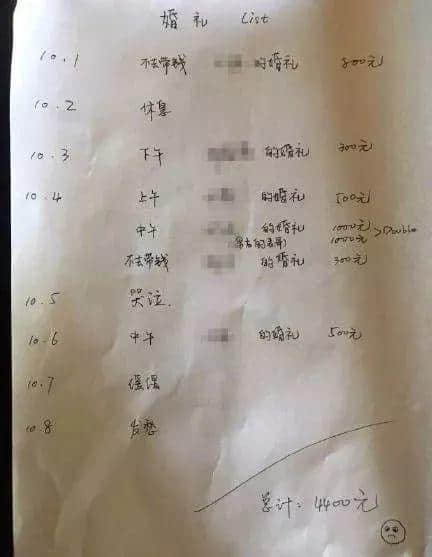 婚礼 List
10.1 不去带钱 的婚礼 800元
10.2 休息
10.3 下午 的婚礼 300元
10.4 上午 的婚礼 500元
中午 的婚礼 1000元
1000元 >Double
不去带钱 的婚礼 300元
10.5 哭泣.
10.6 中午 的婚礼 500元
10.7 缓缓
10.8 发愁
总计：4400元